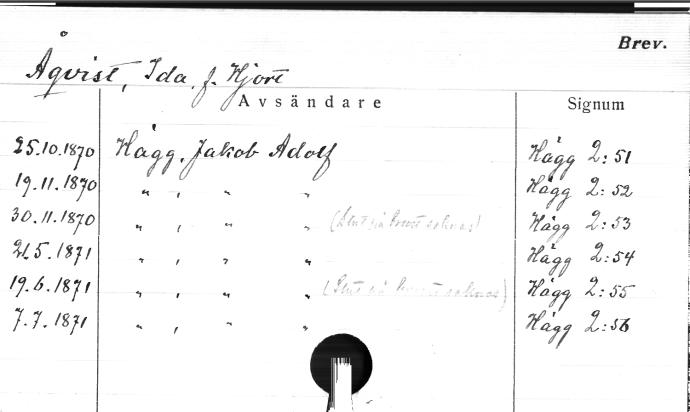 Brev.
Åqvist, Ida, f. Hjort
Avsändare Signum
25.10.1870 Hägg, Jakob Adolf Hägg 2:51
19.11.1870 " , " " Hägg 2:52
30.11.1870 " , " " (Slut på brevet saknas) Hägg 2:53
21.5.1871 " , " " Hägg 2:54
19.6.1871 " , " " (Slut på brevet saknas) Hägg 2:55
7.7.1871 " , " " Hägg 2:56